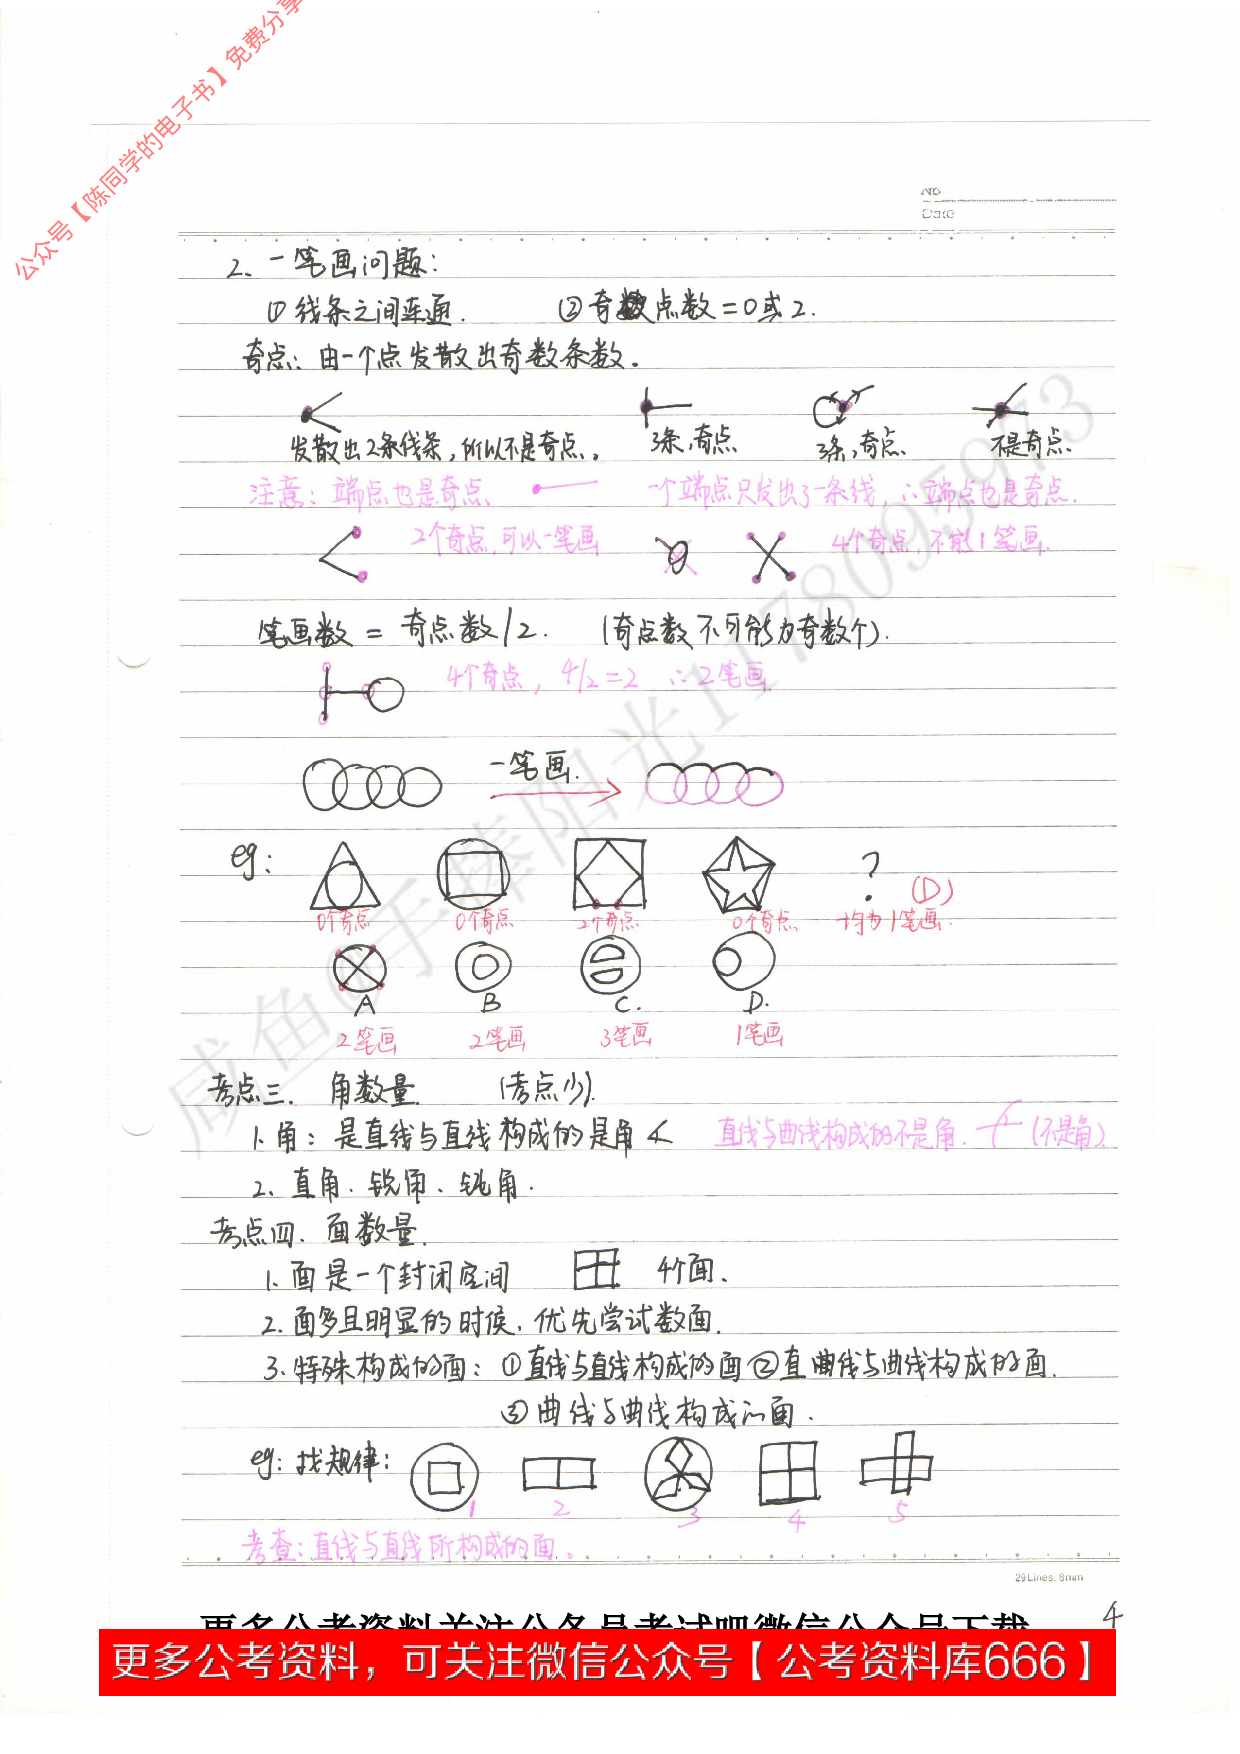 公众号【陈同学的电子书】免费分享
No
Date
2、一笔画问题：
①线条之间连通. ②奇数点数=0或2.
奇点：由一个点发散出奇数条数。
发散出2条线条，所以不是奇点。 3条,奇点 3条,奇点 不是奇点
注意：端点也是奇点 一个端点只发出了一条线，∴端点也是奇点.
2个奇点,可以一笔画 4个奇点,不能1笔画.
笔画数 = 奇点数/2. (奇点数不可能为奇数个).
4个奇点, 4/2=2 ∴2笔画.
一笔画.
eg: ? (D)
0个奇点 0个奇点 2个奇点 0个奇点 均为1笔画.
A B C. D.
2笔画 2笔画 3笔画 1笔画
考点三. 角数量 (考点少).
1.角：是直线与直线构成的是角 直线与曲线构成的不是角. (不是角)
2、直角、锐角、钝角.
考点四、面数量.
1.面是一个封闭空间 4个面、
2.面多且明显的时候，优先尝试数面.
3.特殊构成的面：①直线与直线构成的面②直曲线与曲线构成的面.
③曲线与曲线构成的面.
eg:找规律：
1 2 3 4 5
考查：直线与直线所构成的面。
29Lines, 8mm
4
更多公考资料关注公务员考试吧微信公众号下载
更多公考资料，可关注微信公众号【公考资料库666】
咸鱼@手捧阳光1178095973